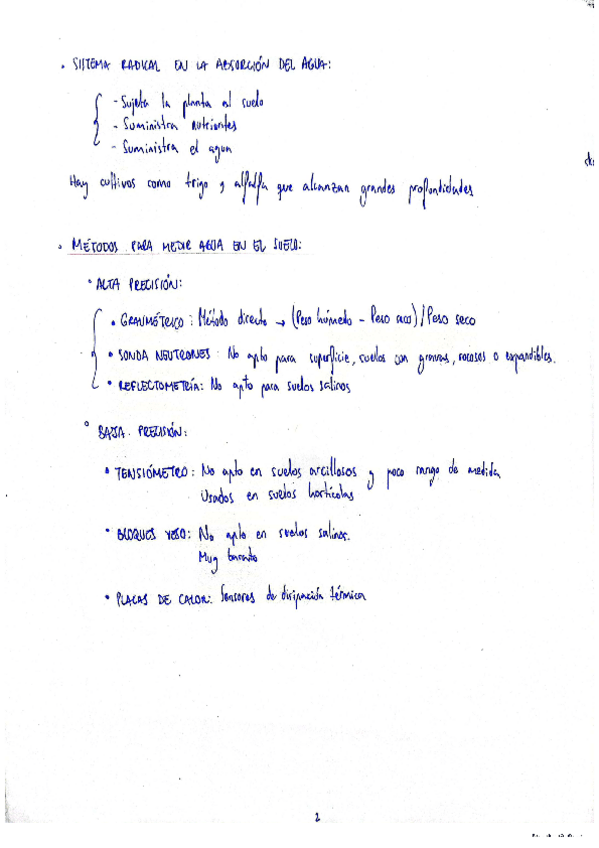 • SISTEMA RADICAL EN LA ABSORCIÓN DEL AGUA:
- Sujeta la planta al suelo
- Suministra nutrientes
- Suministra el agua
Hay cultivos como trigo y alfalfa que alcanzan grandes profundidades
• MÉTODOS PARA MEDIR AGUA EN EL SUELO:
• ALTA PRECISIÓN:
• GRAVIMÉTRICO: Método directo → (Peso húmedo - Peso seco) / Peso seco
• SONDA NEUTRONES: No apto para superficie, suelos con gravas, rocosos o expandibles.
• REFLECTOMETRÍA: No apto para suelos salinos
• BAJA PRECISIÓN:
• TENSIÓMETRO: No apto en suelos arcillosos y poco rango de medida
Usados en suelos hortícolas
• BLOQUES YESO: No apto en suelos salinos.
Muy barato
• PLACAS DE CALOR: Sensores de disipación térmica
2